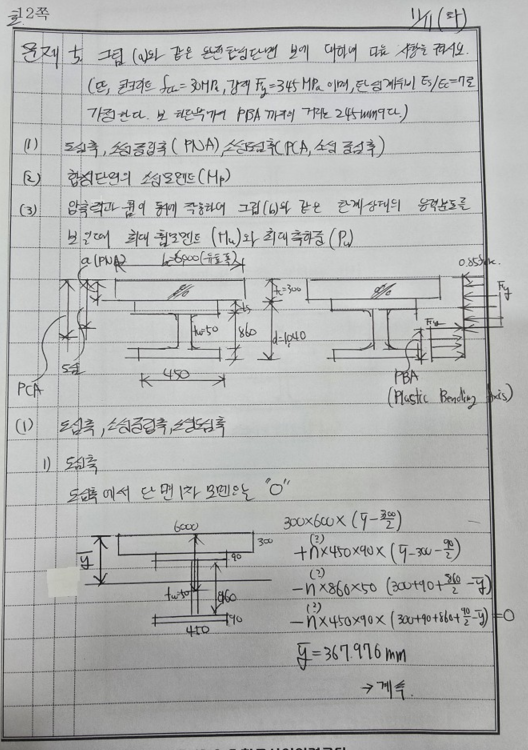 11/11 (화)
문제 5. 그림 (a)와 같은 완전합성단면 보에 대하여 다음 사항을 구하시오.
(단, 콘크리트 fck = 30MPa, 강재 Fy = 345 MPa 이며, 탄성계수비 Es/Ec = 7로
가정한다. 보 하단에서 PBA 까지의 거리는 245mm이다.)
(1) 도심축, 소성중립축 (PNA), 소성도심축 (PCA, 소성 중심축)
(2) 합성단면의 소성모멘트 (Mp)
(3) 압축력과 휨이 동시에 작용하여 그림 (b)와 같은 한계상태의 응력분포를
보일 때 최대 휨모멘트 (Mu)와 최대축하중 (Pu)
a (PNA)
b=6000 (유효폭)
tc=300
tw=50
860
d=1040
450
도심
PCA
0.85fck
Fy
Fy
PBA
(Plastic Bending Axis)
(1) 도심축, 소성중립축, 소성도심축
1) 도심축
도심축에서 단면1차 모멘트는 "0"
6000
300
90
ȳ
tw=50
860
450
90
300×600×(ȳ-300/2)
+n(?)×450×90×(ȳ-300-90/2)
-n(?)×860×50 (300+90+860/2-ȳ)
-n(?)×450×90×(300+90+860+90/2-ȳ) = 0
ȳ = 367.976 mm
→ 계속.